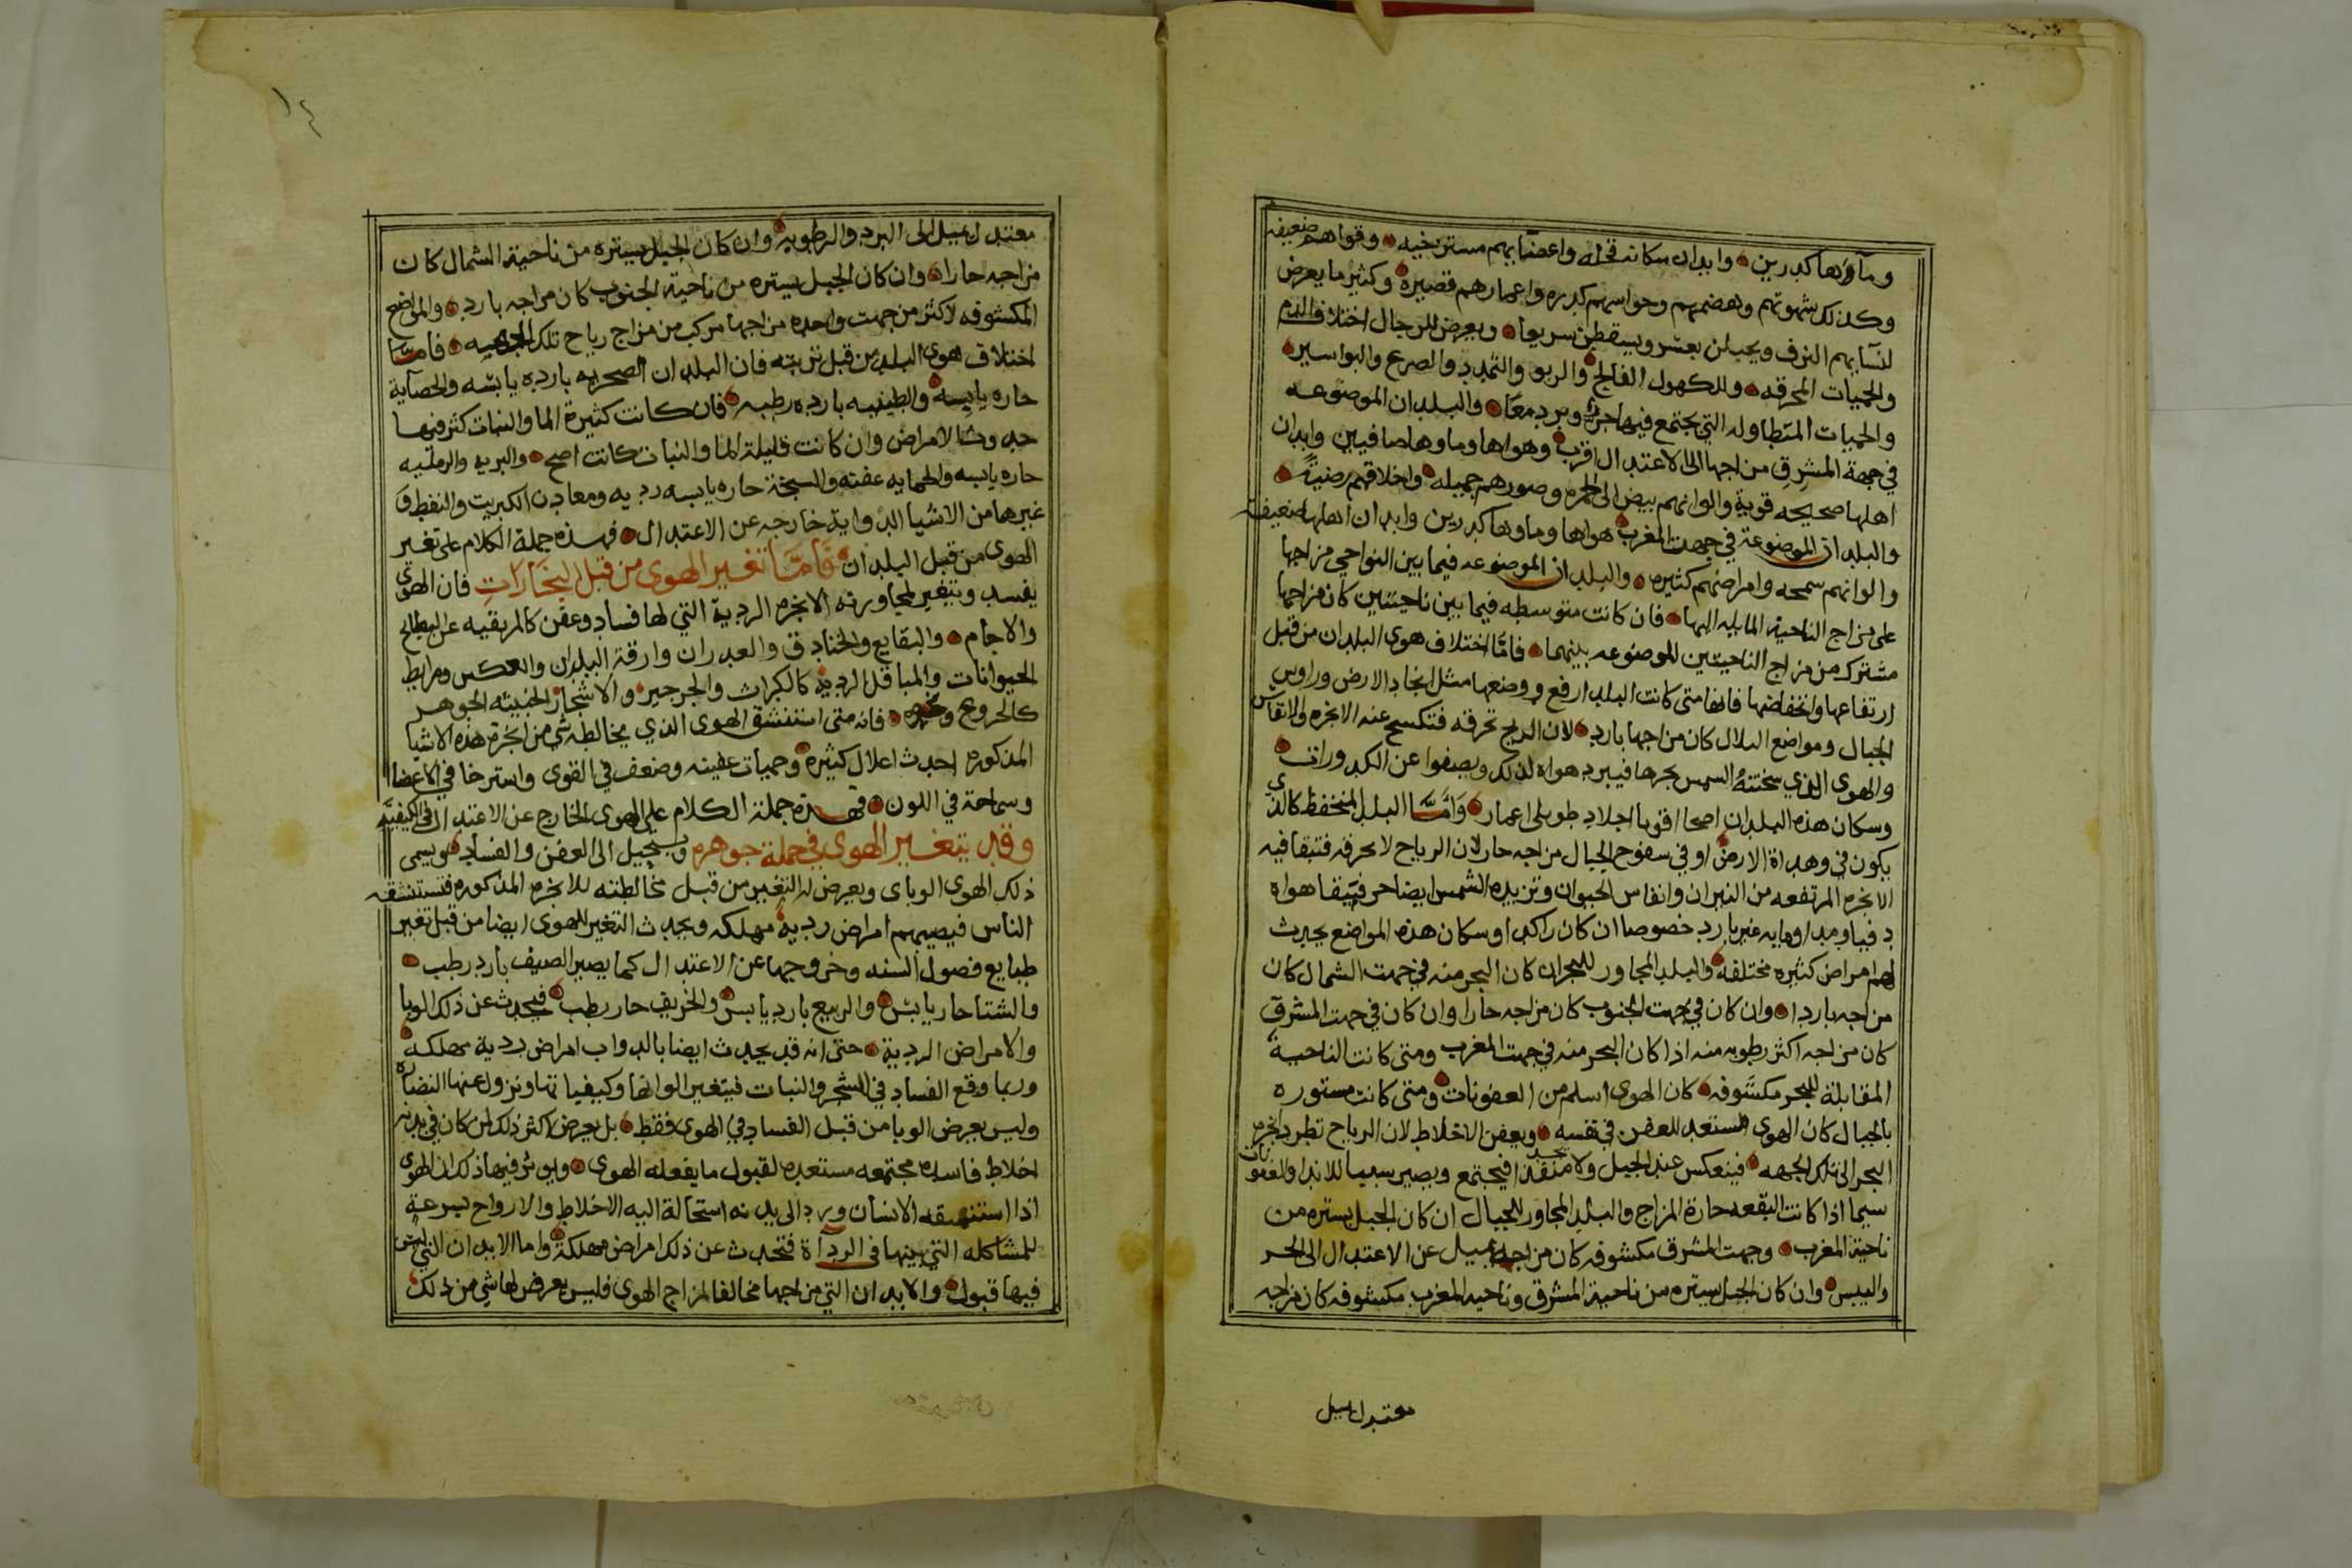 وماوها كدرين وابدان سكانه قحله واعضايهم مسترخيه وقواهم ضعيفه
وكذلك شهوتهم وهضمهم وحواسهم كدره واعمارهم قصيره وكثير ما يعرض
لنسايهم النزف ويحبلن بعسر ويسقطن سريعا ويعرض للرجال اختلاف الدم
والحميات المحرقه وللكهول الفالج والربو والتمدد والصرع والبواسير
والحميات المتطاوله التي يجتمع فيها حر وبرد معا والبلدان الموضوعه
في جهة المشرق مزاجها الى الاعتدال اقرب وهواها وماوها صافيين وابدان
اهلها صحيحه قوية والوانهم بيض الى الحمره وصورهم جميله واخلاقهم رضية
والبلدان الموضوعة في جهت المغرب هواها وماوها كدرين وابدان اهلها ضعيفه
والوانهم سمجه وامراضهم كثيره والبلدان الموضوعه فيما بين النواحي مزاجها
على مزاج الناحية المايله اليها فان كانت متوسطه فيما بين ناحيتين كان مزاجها
مشترك من مزاج الناحيتين الموضوعه بينهما فاما اختلاف هوى البلدان من قبل
ارتفاعها وانخفاضها فانها متى كانت البلد ارفع ووضعها مثل انجاد الارض وراوس
الجبال ومواضع التلال كان مزاجها بارد لان الريح تخرقه فتكسح عنه الابخره والانفاس
والهوى الذي سخنته الشمس بحرها فيبرد هواه لذلك ويصفوا عن الكدورات
وسكان هذه البلدان اصحا اقويا اجلاد طويلي اعمار واما البلد المنخفظ كالذي
يكون في وهداة الارض او في سفوح الجبال مزاجه حار لان الرياح لا تخرقه فتبقا فيه
الابخره المرتفعه من النيران وانفاس الحيوان وتزيده الشمس ايضا حر فيبقا هواه
دفيا ومدا ومايه غير بارد خصوصا ان كان راكد اوسكان هذه المواضع يحدث
لهم امراض كثيره مختلفه والبلد المجاور للبحر ان كان البحر منه في جهت الشمال كان
مزاجه باردا وان كان في جهت الجنوب كان مزاجه حارا وان كان في جهت المشرق
كان مزاجه اكثر رطوبه منه اذا كان البحر منه في جهت المغرب ومتى كانت الناحية
المقابلة للبحر مكشوفه كان الهوى اسلم من العفونات ومتى كانت مستوره
بالجبال كان الهوى مستعد للعفن في نفسه ويعفن الاخلاط لان الرياح تطرد ابخره
البحر الى تلك الجهه فينعكس عند الجبل ولا تجد منفذا فيجتمع ويصير سببا للاندا والعفونات
سيما اذا كانت البقعه حارة المزاج والبلد المجاور للجبال ان كان الجبل يستره من
ناحية المغرب وجهت المشرق مكشوفه كان مزاجه يميل عن الاعتدال الى الحر
واليبس وان كان الجبل يستره من ناحية المشرق وناحيه المغرب مكشوفه كان مزاجه
معتدل يميل
١٤
معتدل يميل الى البرد والرطوبه وان كان الجبل يستره من ناحية الشمال كان
مزاجه حارا وان كان الجبل يستره من ناحية الجنوب كان مزاجه بارد والمواضع
المكشوفه لاكثر من جهت واحده مزاجها مركب من مزاج رياح تلك الجهه فاما
اختلاف هوى البلد من قبل تربته فان البلدان الصخريه بارده يابسه والحصاية
حاره يابسه والطينيه بارده رطبه فان كانت كثيرة الما والنبات كثر فيها
حدوث الامراض وان كانت قليلة الما والنبات كانت اصح والبريه والرمليه
حاره يابسه والحمايه عفنه والسبخة حاره يابسه رديه ومعادن الكبريت والنفط و
غيرها من الاشيا الدواية خارجه عن الاعتدال فهذه جملة الكلام على تغير
الهوى من قبل البلدان فاما تغير الهوى من قبل البخارات فان الهوى
يفسد ويتغير لمجاورته الابخره الردية التي لها فساد وعفن كالمرتقيه عن البطايح
والاجام والبقايع والخنادق والغدران وازقة البلدان والعكس ومرابط
الحيوانات والمباقل الرديه كالكراث والجرجير والاشجار الخبيثه الجوهر
كالخروع فانه متى استنشق الهوى الذي يخالطه شي من ابخرة هذه الاشيا
المذكوره احدث اعلال كثيره وحميات عفنيه وضعف في القوى واسترخا في الاعضا
وسماجة في اللون فهذه جملة الكلام على الهوى الخارج عن الاعتدال في الكيفيه
وقد يتغير الهوى في جملة جوهره ويستحيل الى العفن والفساد ويسمى
ذلك الهوى الوباى ويعرض له التغير من قبل مخالطته للابخره المذكوره فتستنشقه
الناس فيصيبهم امراض ردية مهلكه ويحدث التغير للهوى ايضا من قبل تغير
طبايع فصول السنه وخروجها عن الاعتدال كما يصير الصيف بارد رطب
والشتا حار يابس والربيع بارد يابس والخريف حار رطب فيحدث عن ذلك الوبا
والامراض الردية حتى انه قد يحدث ايضا بالدواب امراض ردية مهلكه
وربما وقع الفساد في الشجر والنبات فيتغير الوانها وكيفياتها وتزول عنها النضاره
وليس يعرض الوبا من قبل الفساد في الهوى فقط بل يعرض اكثر ذلك لمن كان في بدنه
اخلاط فاسده مجتمعه مستعده لقبول ما يفعله الهوى ويوثر فيها ذلك ان الهوى
اذا استنشقه الانسان وورد الى بدنه استحالة اليه الاخلاط والارواح بسرعة
للمشاكله التي بينها في الرداة فتحدث عن ذلك امراض مهلكة واما الابدان التي ليس
فيها قبول والابدان التي مزاجها مخالفا لمزاج الهوى فليس يعرض لها شي من ذلك